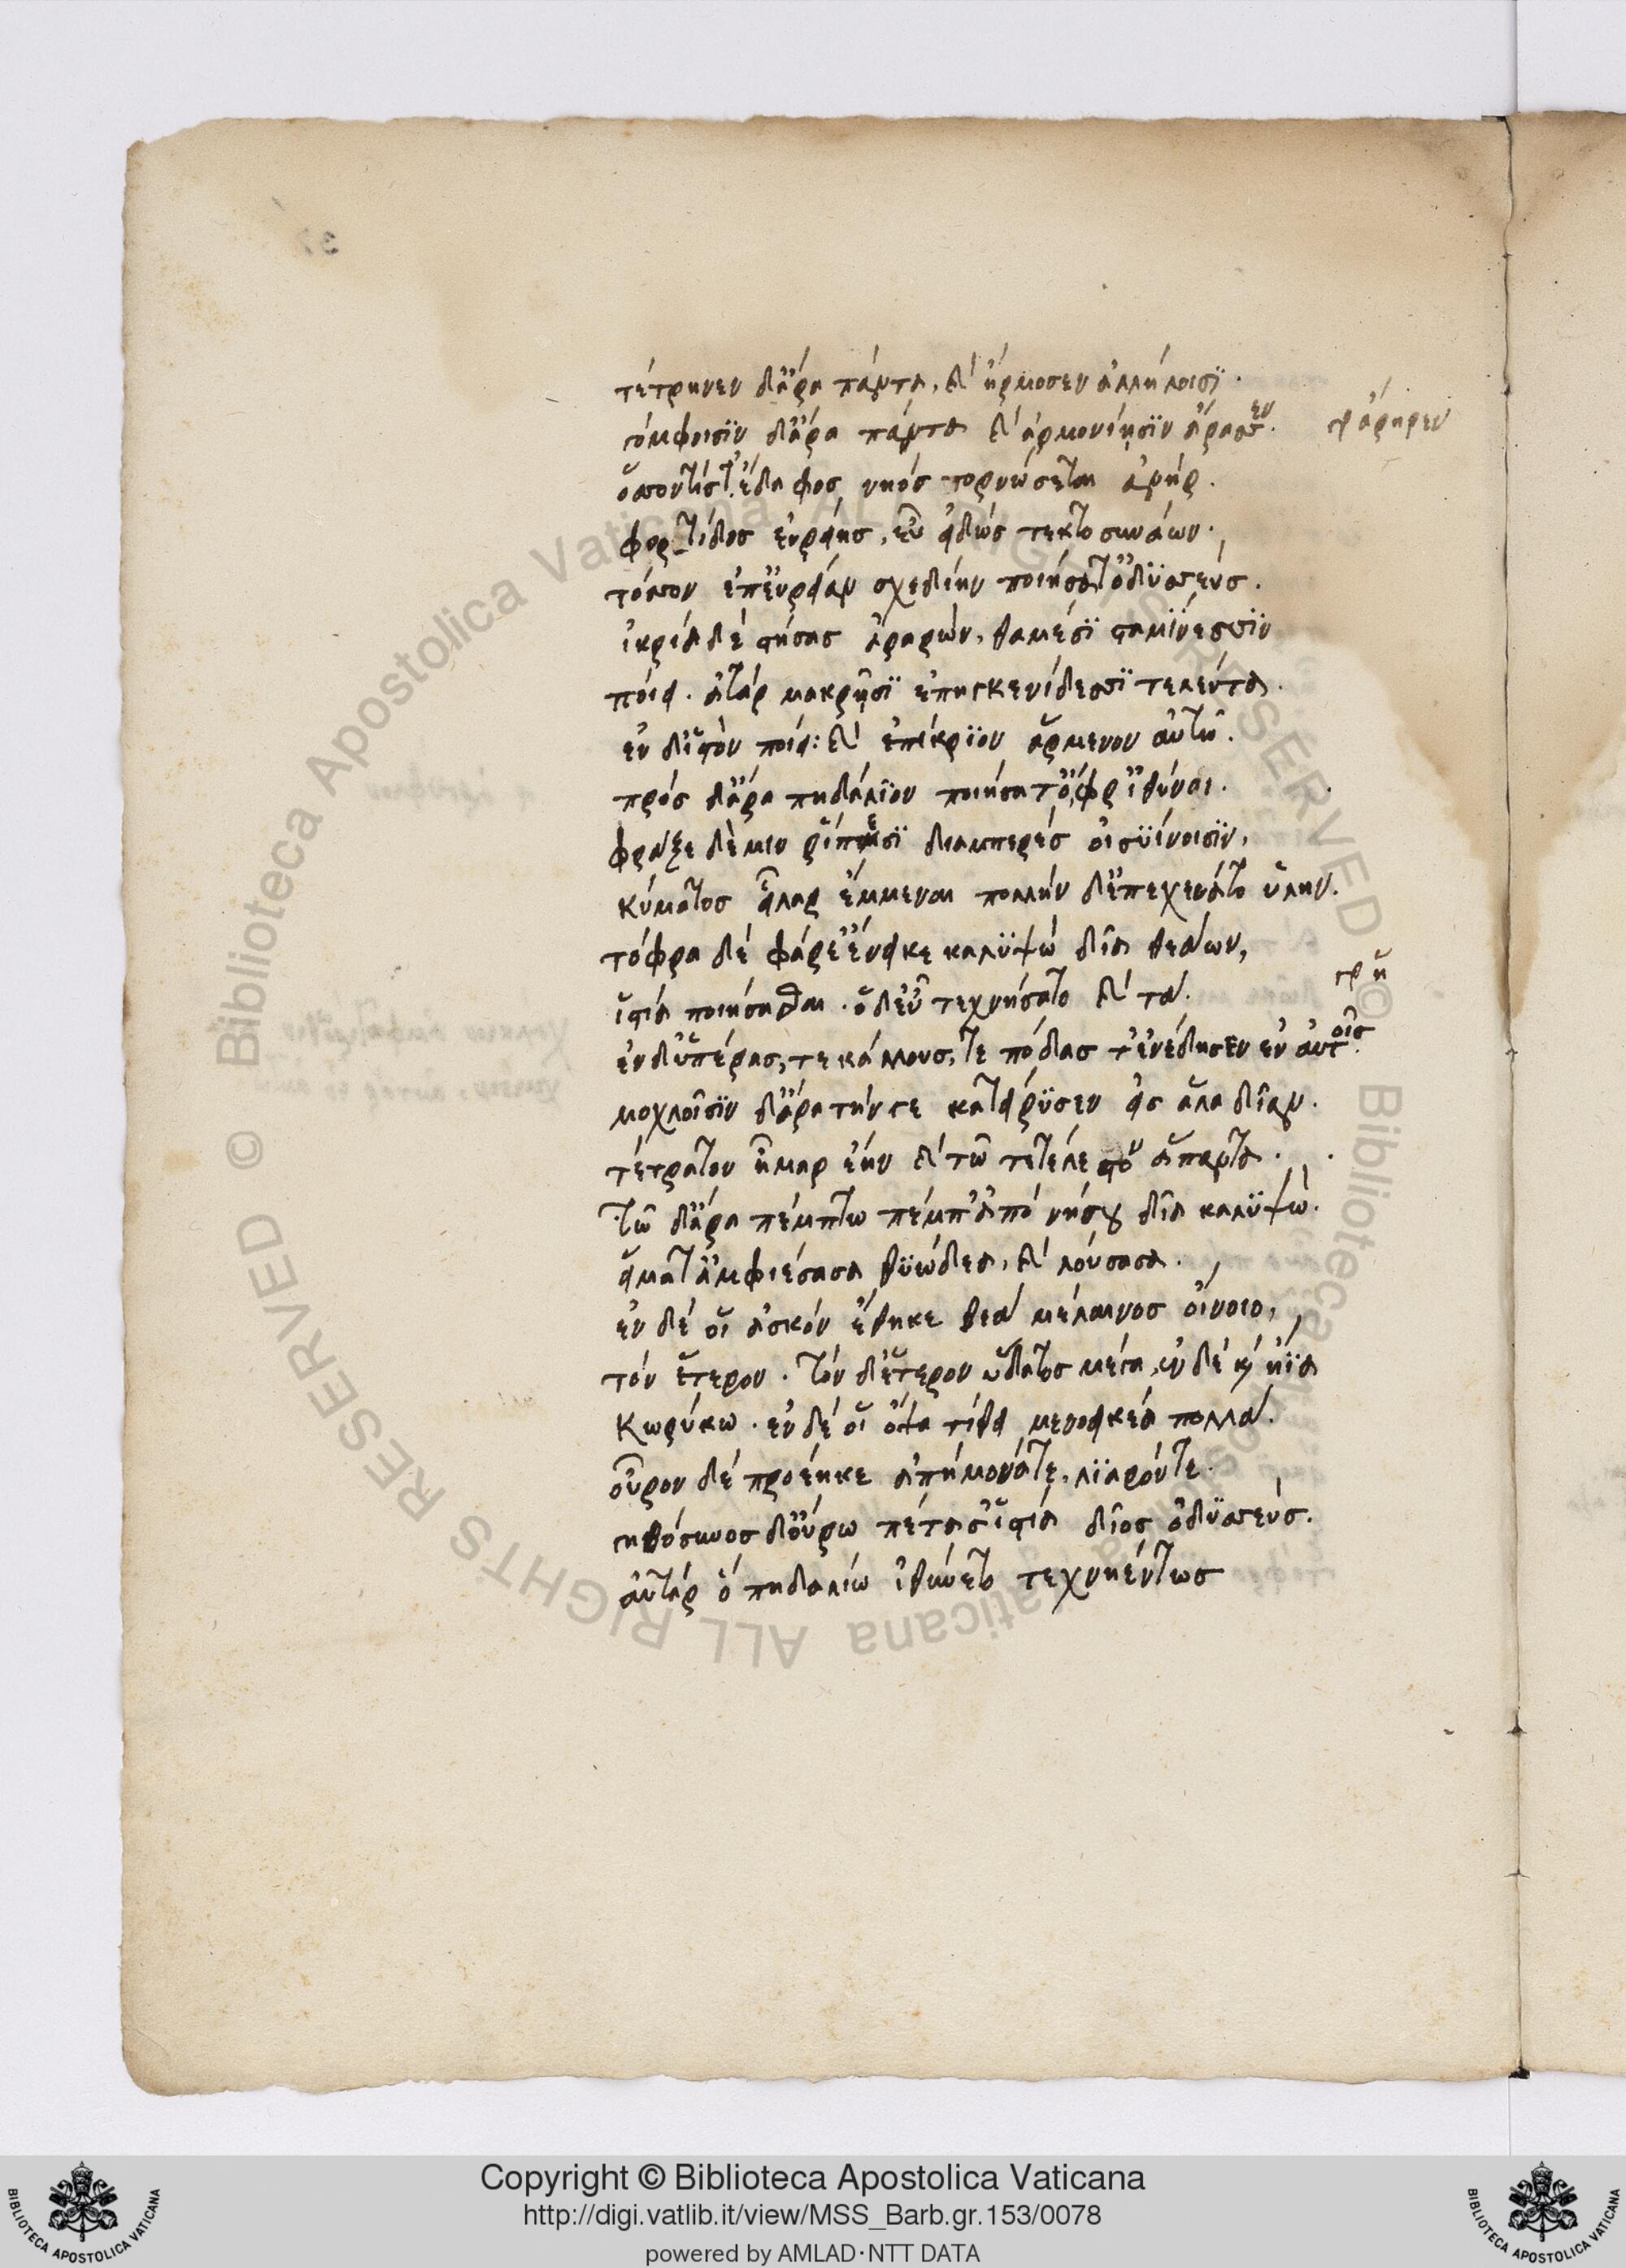 τέτρηνεν δ᾽ ἄρα πάντα, καὶ ἥρμοσεν ἀλλήλοισϊ.
γόμφοισϊν δ᾽ ἄρα πάντα καὶ ἁρμονίῃσϊν ἄρασσεν. γρ ἄρηρεν
ὅσσόν τίς τ᾽ ἔδαφος νηὸς τορνώσεται ἀνὴρ.
φορτίδος εὐρείης, εὖ εἰδὼς τεκτοσυνάων.
τόσσον ἐπ᾽ εὐρεῖαν σχεδίην ποιήσατ᾽ ὀδϋσσεύς.
ἰκρία δὲ στήσας ἀραρὼν, θαμέσϊ σταμΐνεσσϊν
ποίει. ἀτὰρ μακρῇσϊ ἐπηγκενίδεσσϊ τελεύτα.
ἐν δ᾽ ἱστὸν ποίει: καὶ ἐπίκρϊον ἄρμενον αὐτῷ.
πρὸς δ᾽ ἄρα πηδάλϊον ποιήσατο, ὄφρ᾽ ἰθύνοι.
φράξε δέ μιν ῥίπεσϊ διαμπερὲς οἰσϋΐνοισϊν,
κύματος εἶλαρ ἔμμεναι πολλὴν δ᾽ ἐπεχεύατο ὕλην.
τόφρα δὲ φάρε᾽ ἔνεικε καλϋψὼ δῖα θεάων,
ἱστία ποιήσασθαι. ὁ δ᾽ εὖ τεχνήσατο καὶ τά. γρ ἢ
ἐν δ᾽ ὑπέρας, τε κάλλους, τε πόδας τ᾽ ἐνέδησεν ἐν αὐτοῖς.
μοχλοῖσϊν δ᾽ ἄρα τήν γε κατείρϋσεν εἰς ἅλα δῖαν.
τέτρατον ἦμαρ ἔην καὶ τῷ τετέλεστο ἅπαντα.
τῷ δ᾽ ἄρα πέμπτω πέμπ᾽ ἀπὸ νήσου δῖα καλϋψώ.
εἵματ᾽ ἀμφιέσασα θϋώδεα, καὶ λούσασα.
ἐν δέ οἱ ἀσκὸν ἔθηκε θεὰ μέλανος οἴνοιο,
τὸν ἕτερον. τὸν δ᾽ ἕτερον ὕδατος μέγα, ἐν δὲ καὶ ἤϊα
κωρύκω. ἐν δέ οἱ ὄψα τίθει μενοεικέα πολλά.
οὖρον δὲ προέηκε ἀπήμονά τε, λϊαρόν τε.
γηθόσυνος δ᾽ οὔρω πέτασ᾽ ἱστία δῖος ὀδϋσσεύς.
αὐτὰρ ὁ πηδαλίω ἰθύνετο τεχνηέντως
Copyright © Biblioteca Apostolica Vaticana
http://digi.vatlib.it/view/MSS_Barb.gr.153/0078
powered by AMLAD·NTT DATA